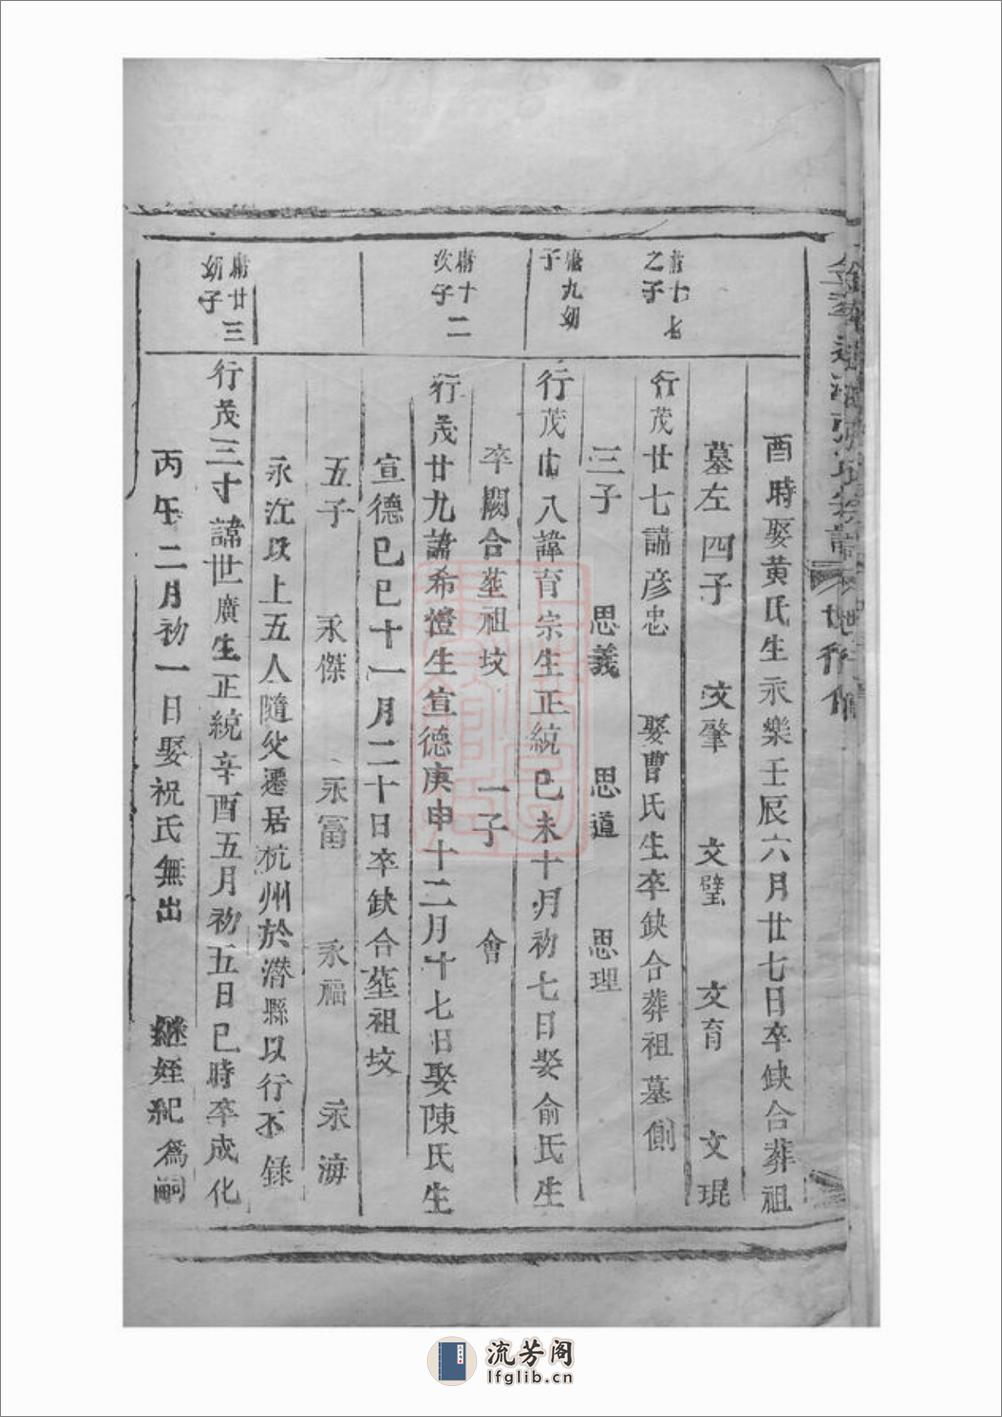 酉時娶黃氏生永樂壬辰六月廿七日卒缺合葬祖
墓左 四子 文肇 文璧 文育 文琨
之子
行茂廿七諱彦忠 娶曹氏生卒缺合葬祖墓側
三子 思義 思道 思理
庸九幼
子
行茂廿八諱育宗生正統己未十月初七日娶俞氏生
卒闕合塟祖坟 一子 會
庸十二
次子
行茂廿九諱希憕生宣德庚申十二月十七日娶陳氏生
宣德己巳十一月二十日卒缺合塟祖坟
五子 永傑 永冨 永福 永海
永江以上五人隨父遷居杭州於潛縣以行不錄
庸廿三
幼子
行茂三十諱世廣生正統辛酉五月初五日巳時卒成化
丙午二月初一日娶祝氏無出 继姪紀爲嗣
流芳阁
lfglib.cn